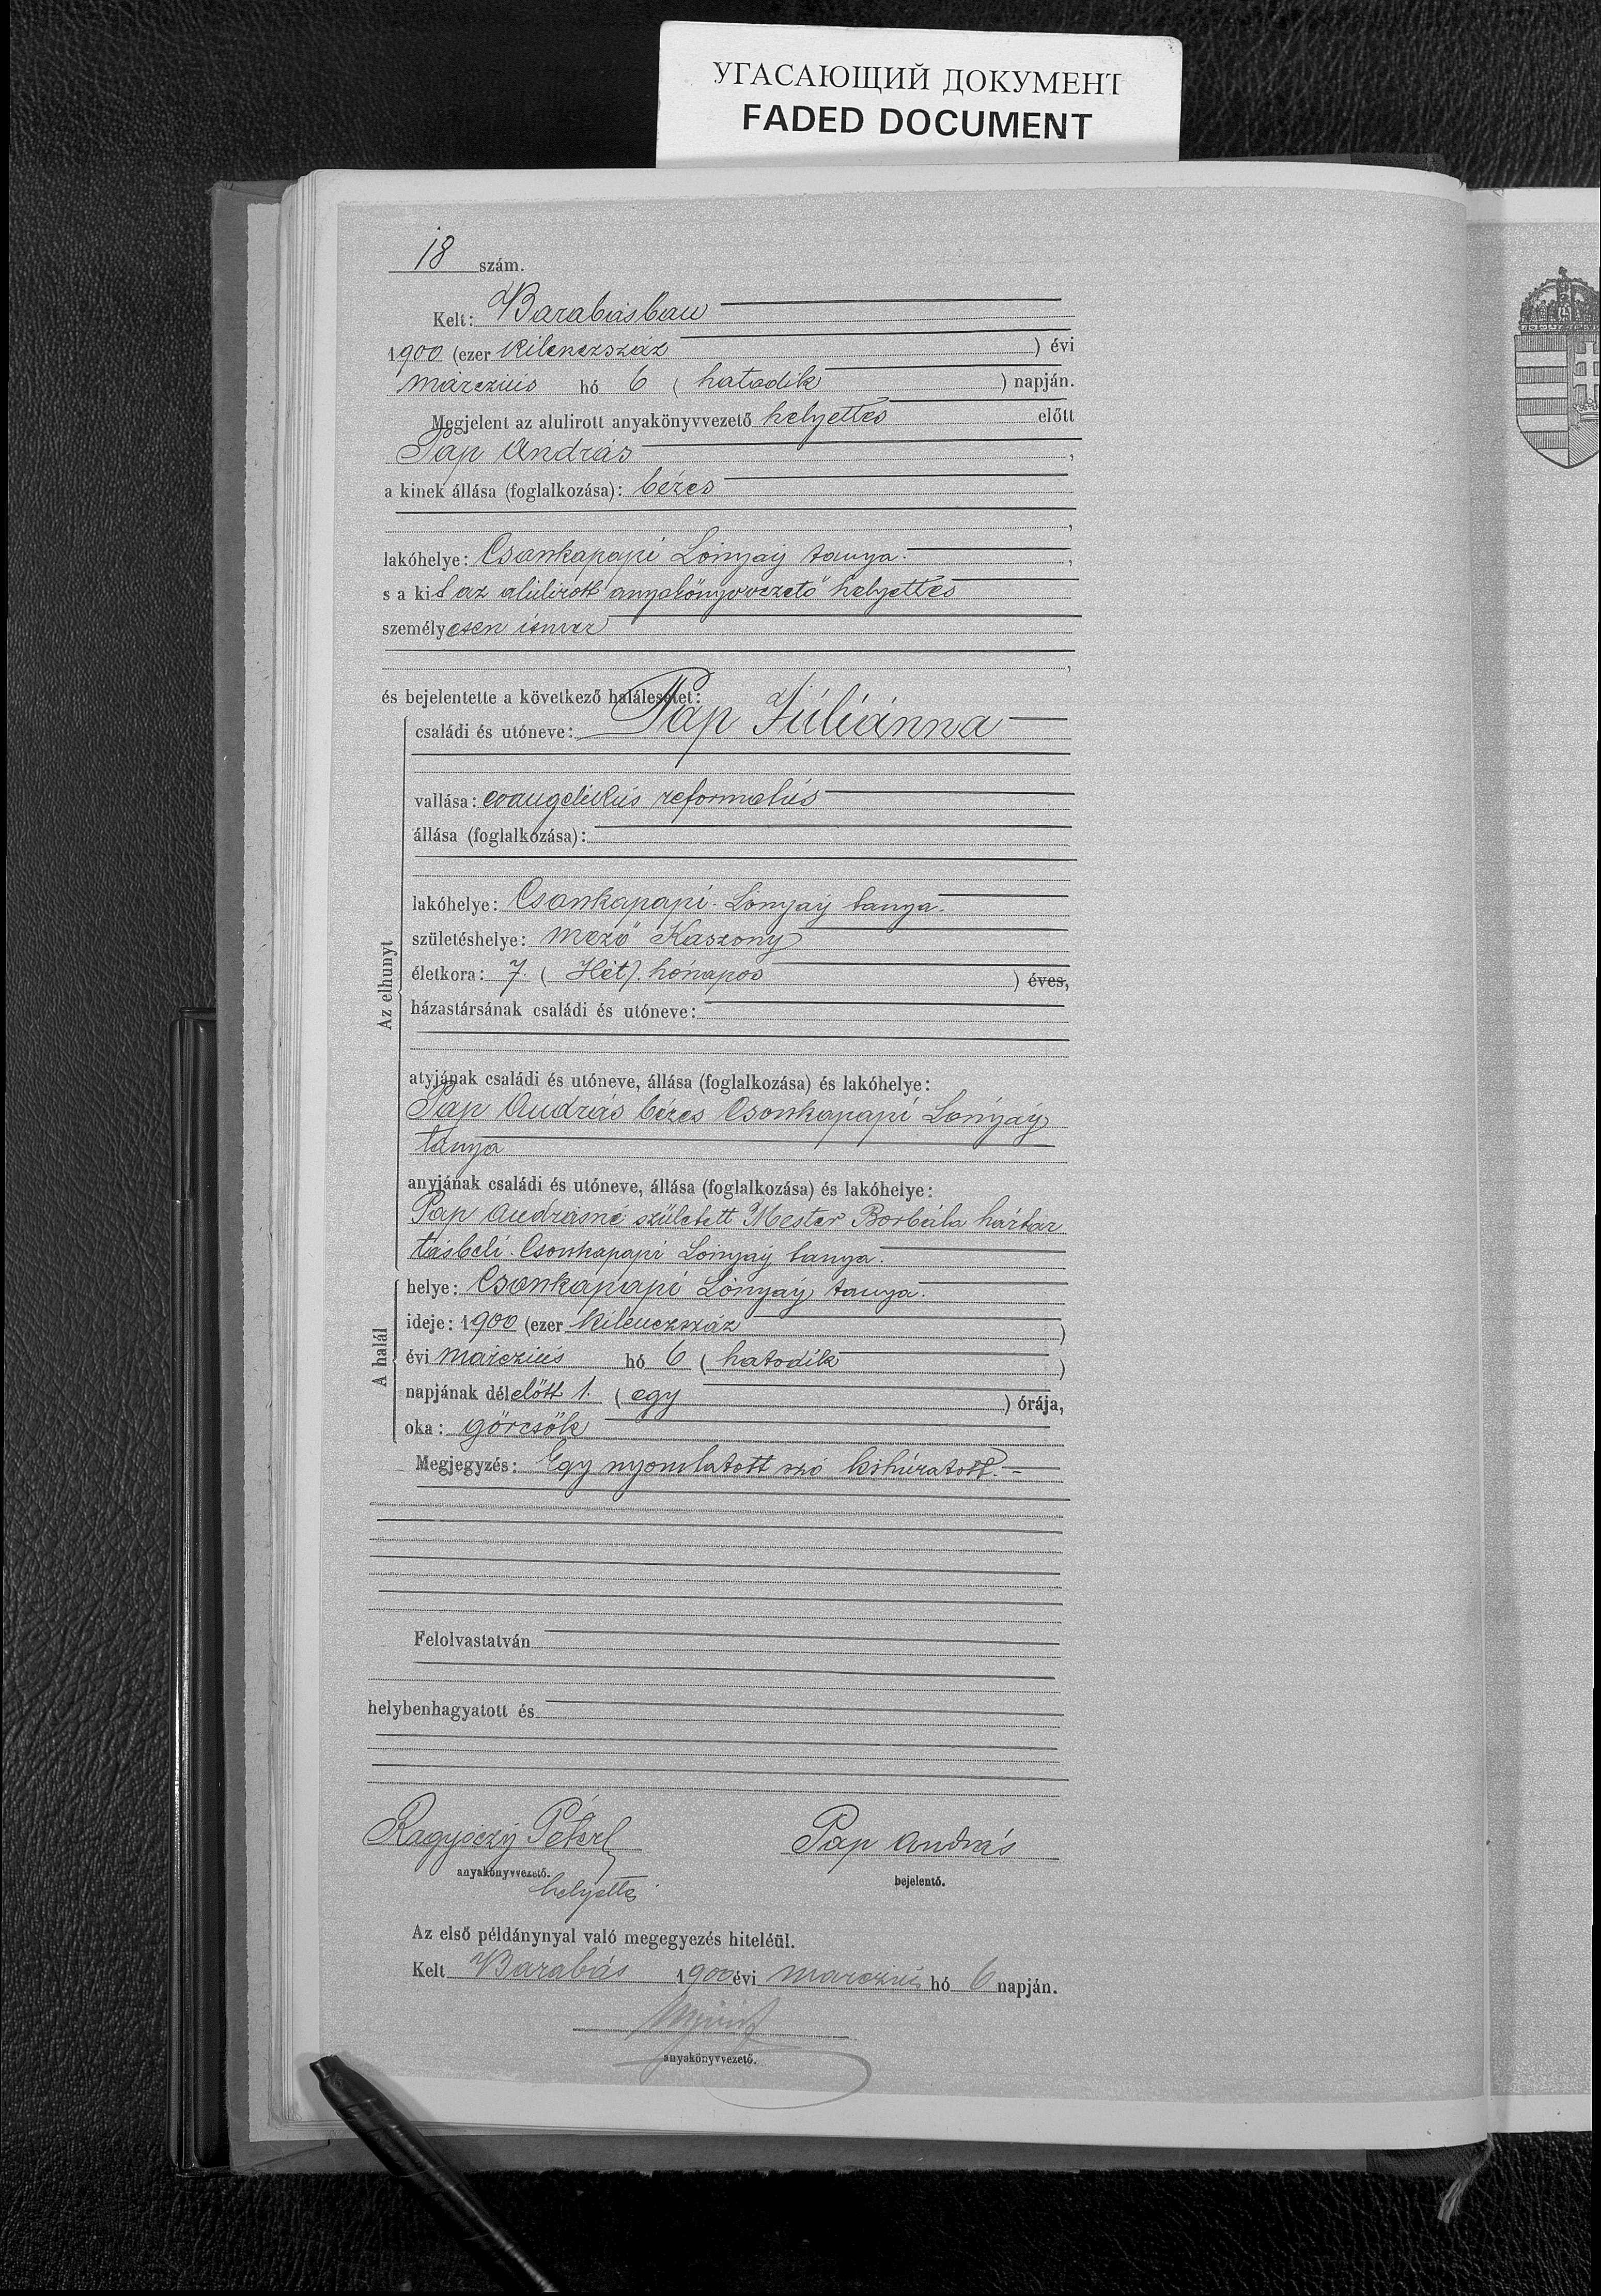 УГАСАЮЩИЙ ДОКУМЕНТ
FADED DOCUMENT
18 szám.
Kelt: Barabásban
1900 (ezer kilenczszáz ) évi
márczius hó 6 ( hatodik ) napján.
Megjelent az alulirott anyakönyvvezető helyettes előtt
Pap András ,
a kinek állása (foglalkozása): béres
,
lakóhelye: Csonkapapi Lónyay tanya. ,
s a kit az alúlirott anyakönyvvezető helyettes
személyesen ismer
,
és bejelentette a következő halálesetet:
Az elhunyt
családi és utóneve: Pap Júliánna
vallása: evangélikús reformatús
állása (foglalkozása):
lakóhelye: Csonkapapi - Lónyay tanya.
születéshelye: Mező Kaszony
életkora: 7. ( Hét). hónapos ) éves,
házastársának családi és utóneve:
atyjának családi és utóneve, állása (foglalkozása) és lakóhelye:
Pap András béres Csonkapapi Lónyay
tanya
anyjának családi és utóneve, állása (foglalkozása) és lakóhelye:
Pap Andrásné született Mester Borbála háztar
tásbeli. Csonkapapi Lónyay tanya.
A halál
helye: Csonkapapi Lónyay tanya.
ideje: 1900 (ezer kilenczszáz )
évi márczius hó 6 ( hatodik )
napjának délelőtt 1. ( egy ) órája,
oka: görcsök
Megjegyzés: Egy nyomtatott szó kihúzatott. -
Felolvastatván
helybenhagyatott és
Péter Pap András
anyakönyvvezető. bejelentő.
helyettes
Az első példánynyal való megegyezés hiteléül.
Kelt Barabás 1900 évi marczius hó 6 napján.
anyakönyvvezető.